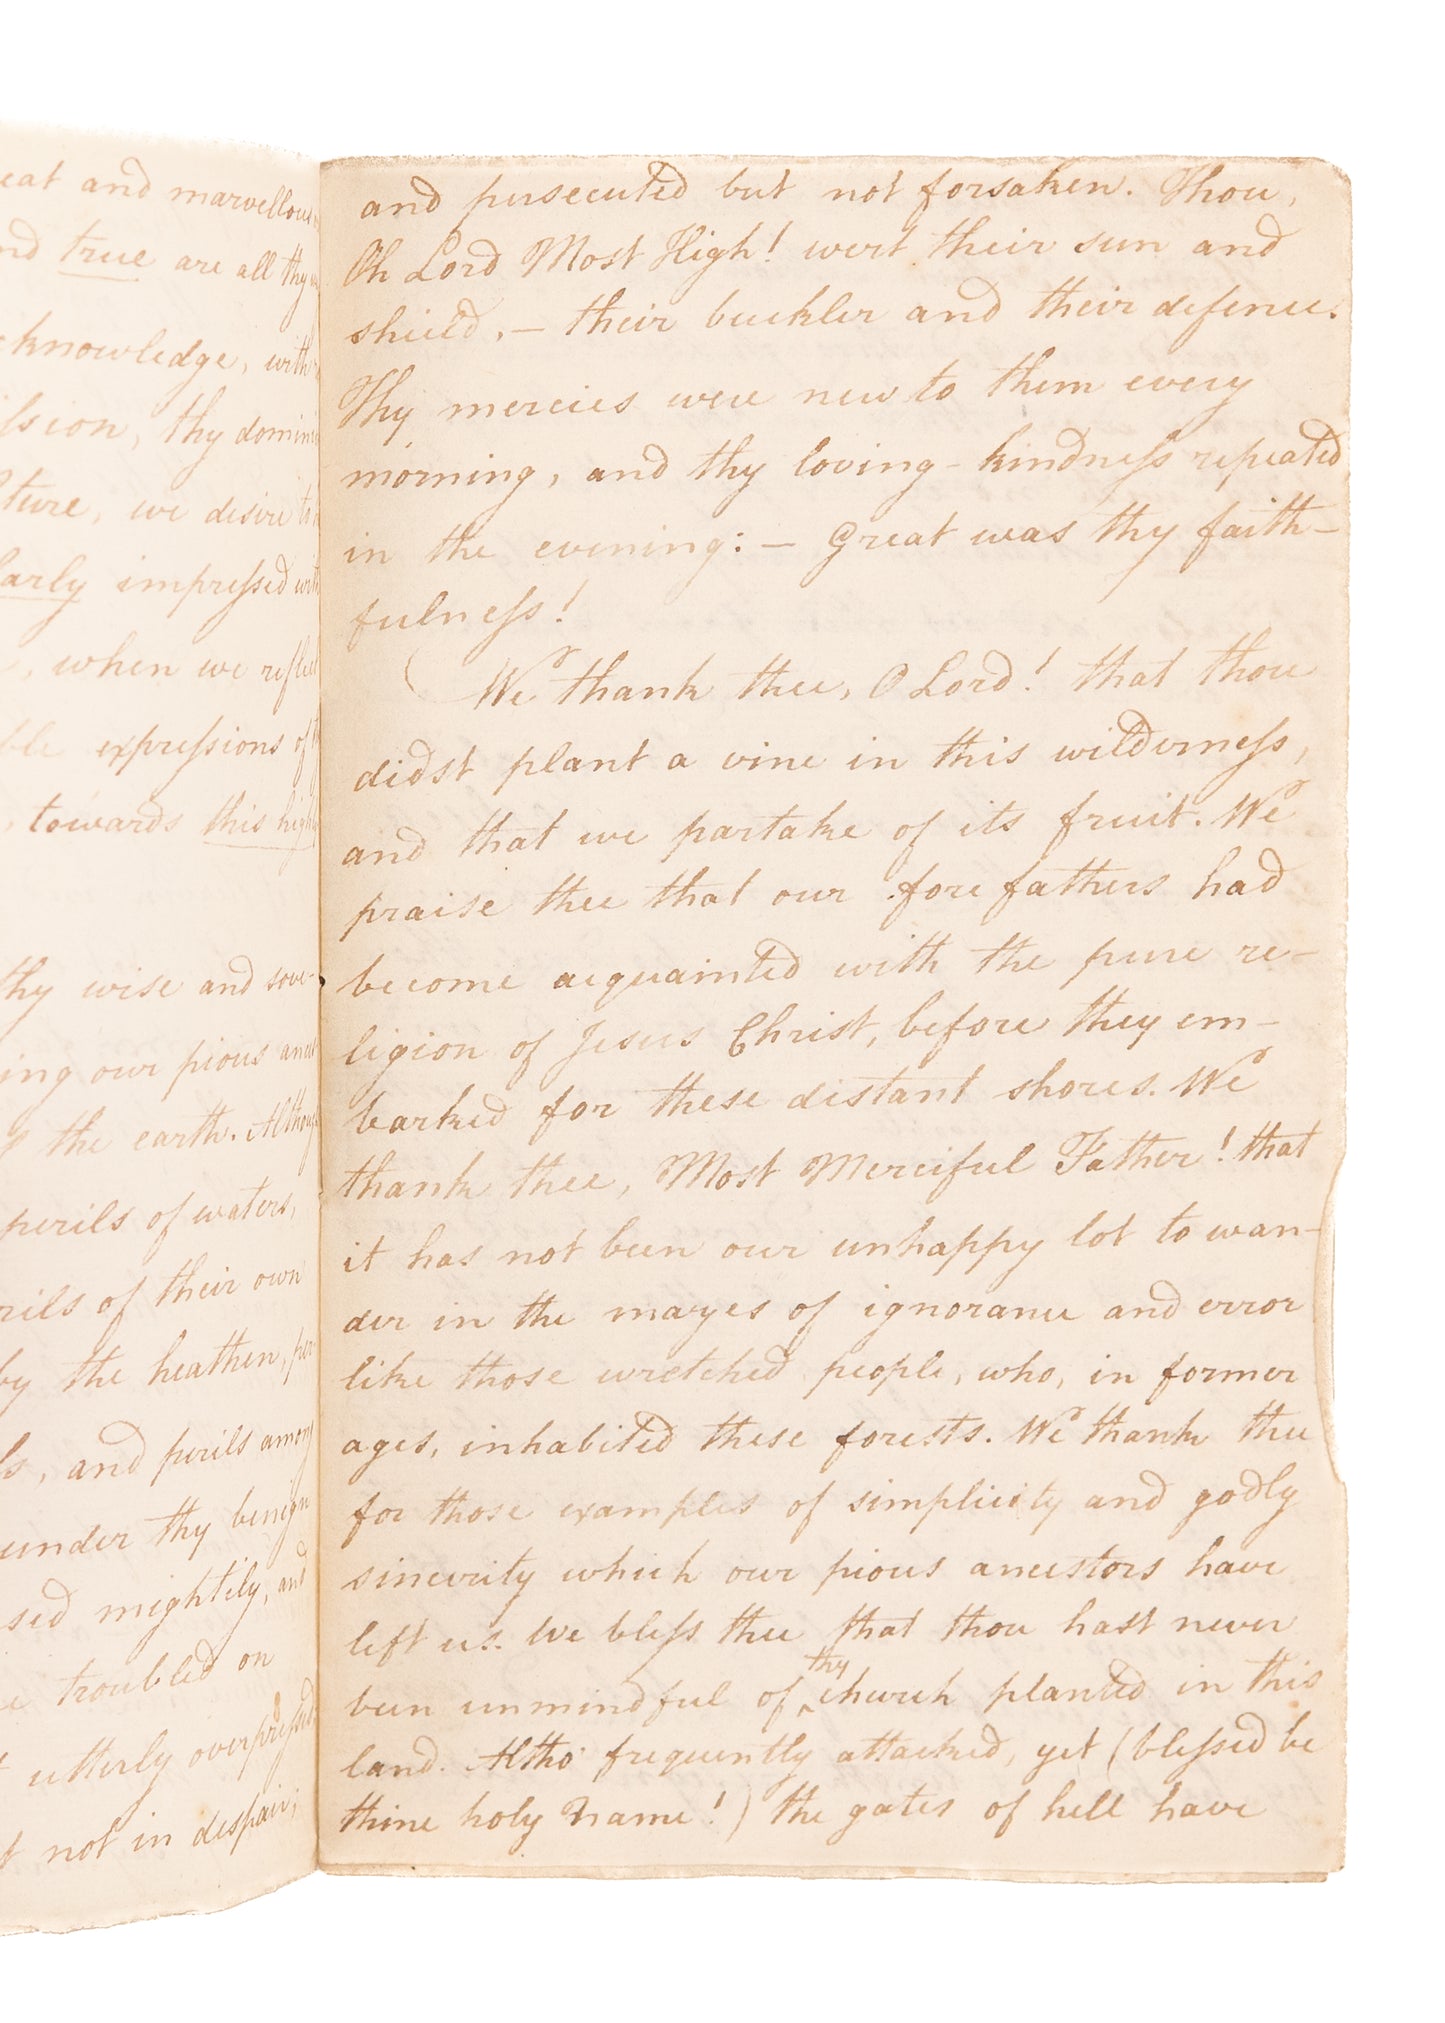 eat and marvellous
nd true are all thy
knowledge, with
ssion, thy domini
ture, we desire to
larly impressed with
, when we reflect
ble expressions of
, towards this highly
thy wise and sove-
ing our pious ancest
the earth. Although
perils of waters,
rils of their own
by the heathen, per
ls, and perils among
under thy benign
sed mightily, and
e troubled on
utterly overpressed
not in despair;
and persecuted but not forsaken. Thou,
Oh Lord Most High! wert their sun and
shield, — their buckler and their defence.
Thy mercies were new to them every
morning, and thy loving-kindness repeated
in the evening: — Great was thy faith-
fulness!
We thank thee, O Lord! that thou
didst plant a vine in this wilderness,
and that we partake of its fruit. We
praise thee that our forefathers had
become acquainted with the pure re-
ligion of Jesus Christ, before they em-
barked for these distant shores. We
thank thee, Most Merciful Father! that
it has not been our unhappy lot to wan-
der in the mazes of ignorance and error
like those wretched people, who, in former
ages, inhabited these forests. We thank thee
for those examples of simplicity and godly
sincerity which our pious ancestors have
left us. We bless thee that thou hast never
been unmindful of thy church planted in this
land. Altho' frequently attacked, yet (blessed be
thine holy name!) the gates of hell have